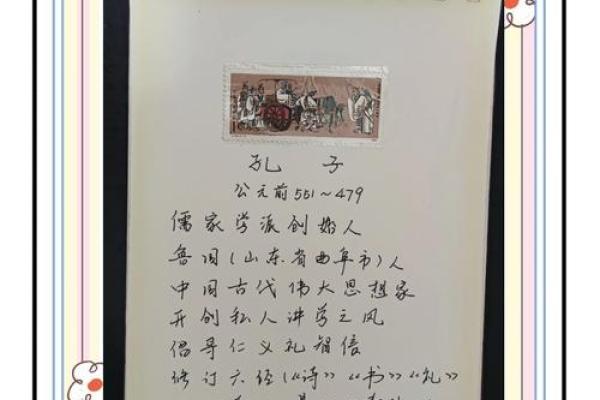 孔子
公元前551~479
儒家学派创始人
鲁国(山东省曲阜市)人
中国古代伟大思想家
开创私人讲学之风
倡导仁义礼智信
修订六经(《诗》《书》《礼》